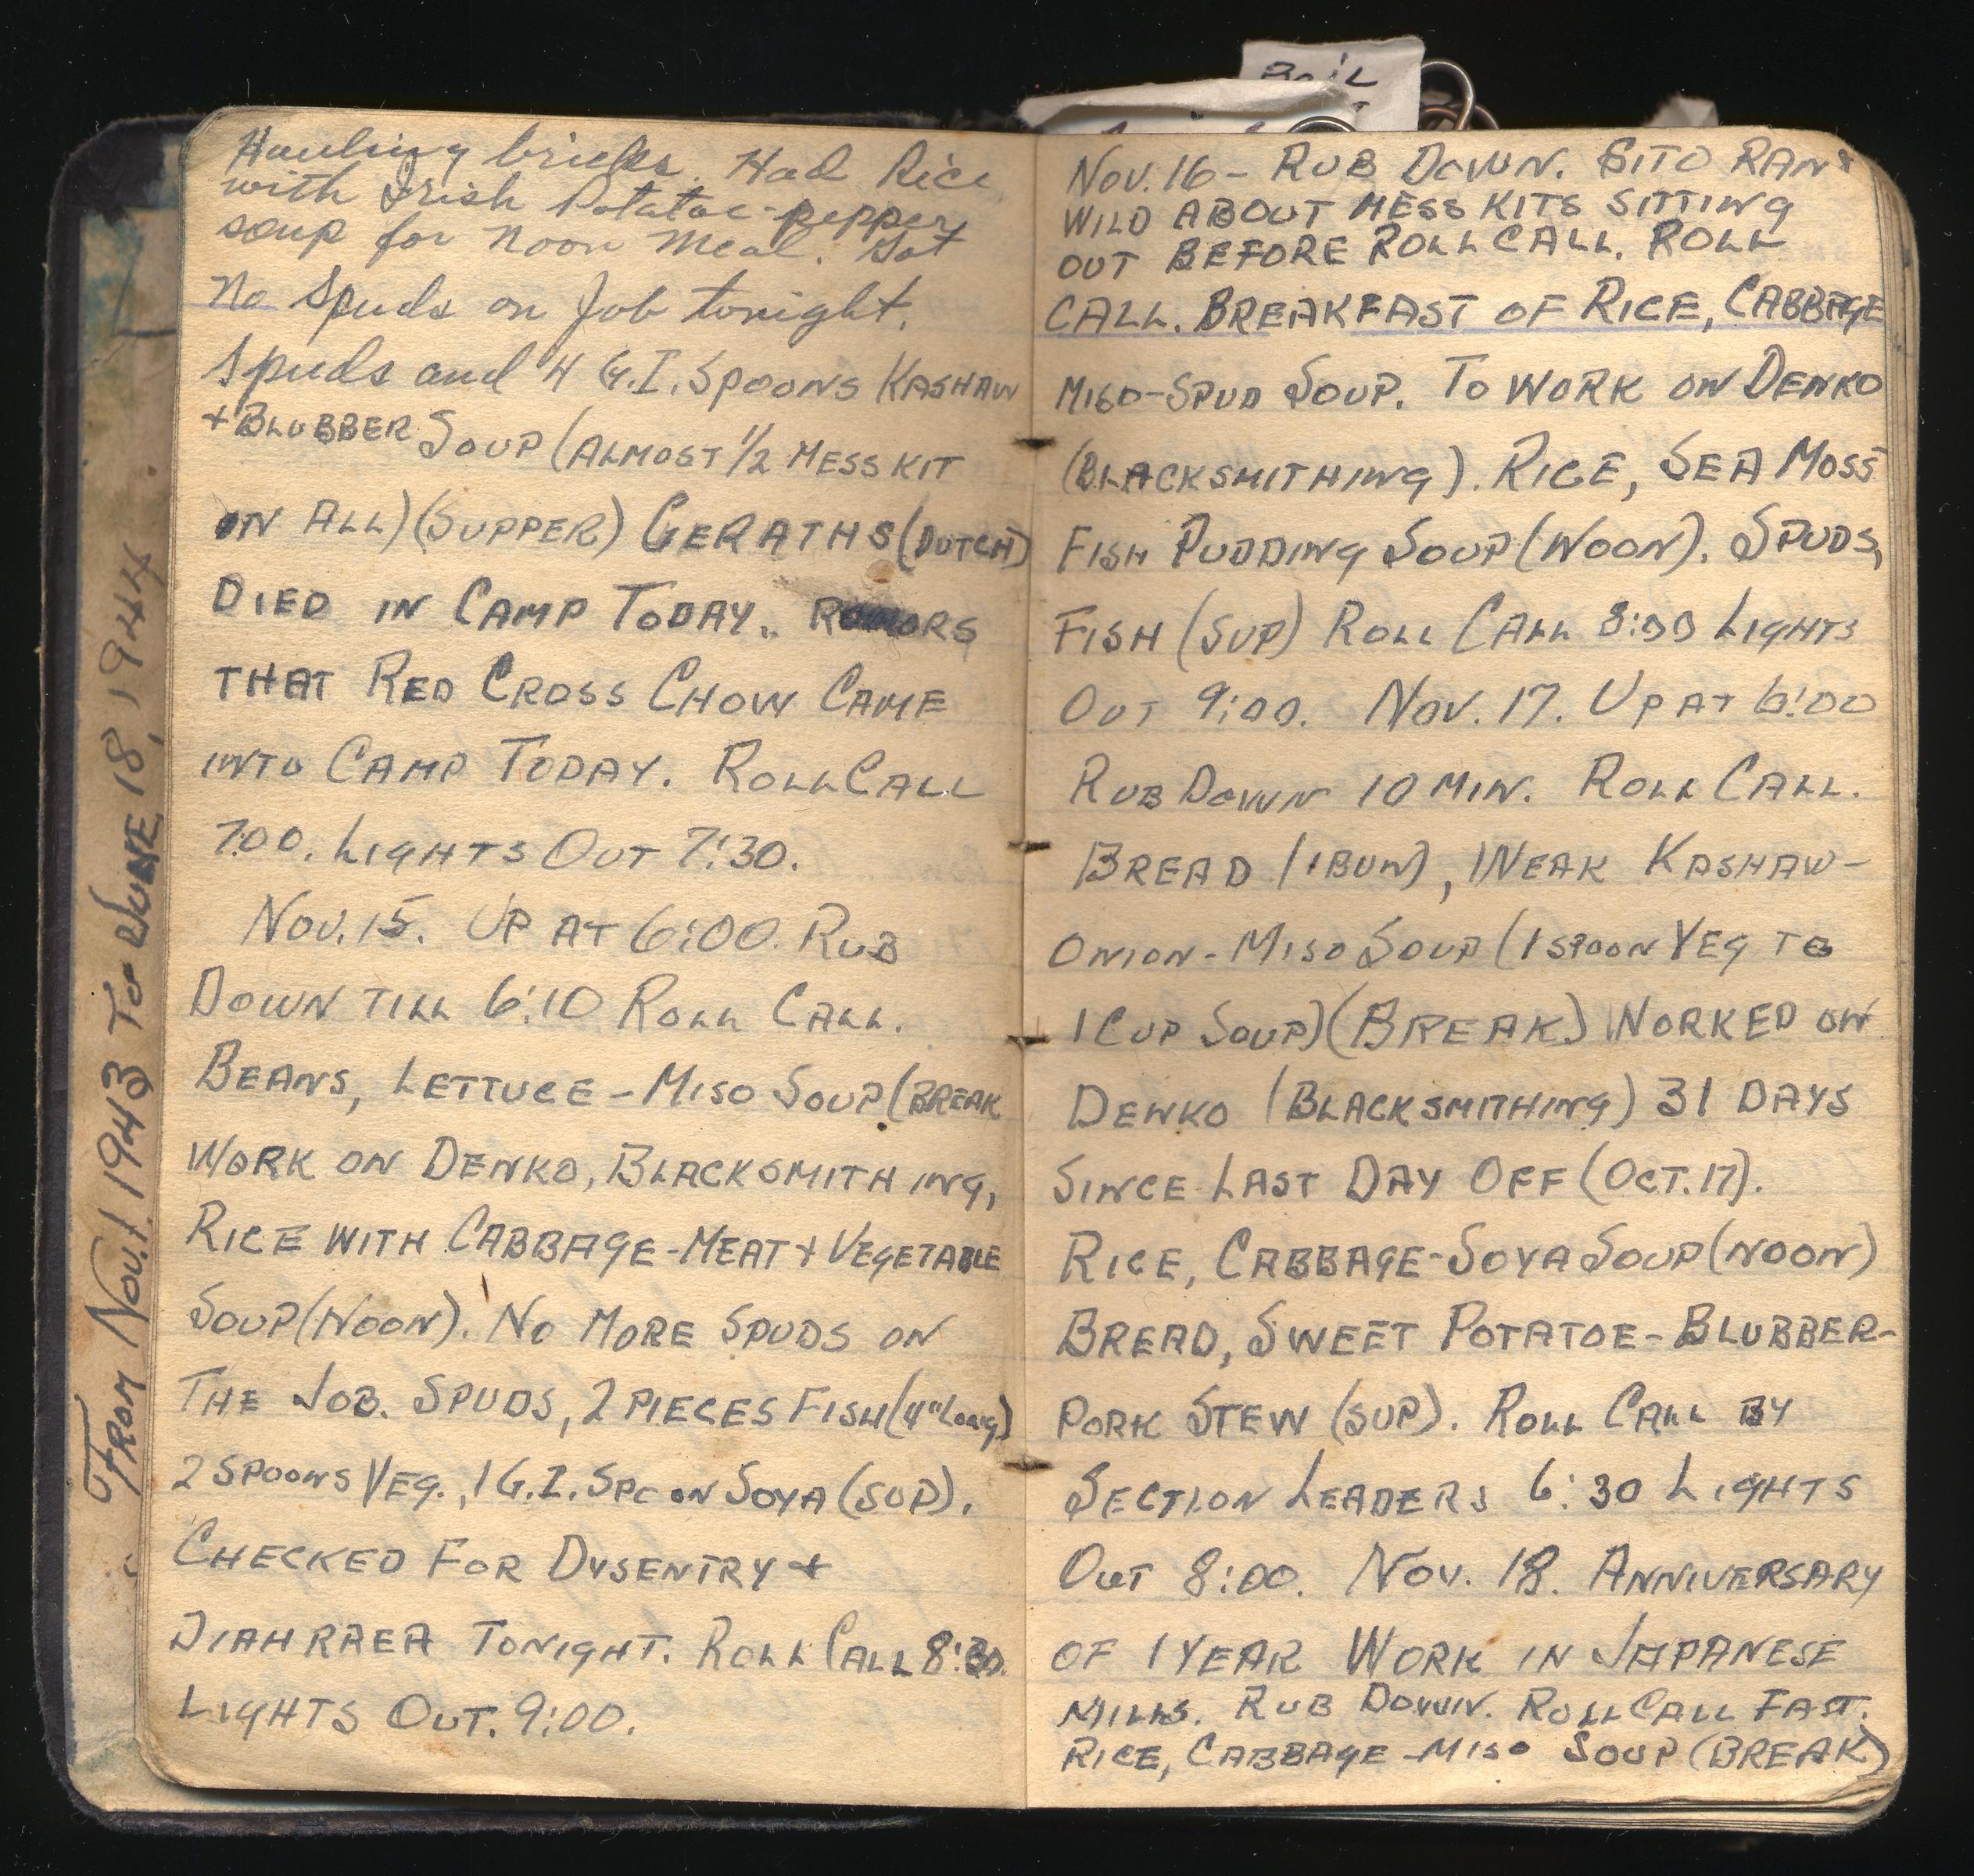 From Nov. 1, 1943 To June 18, 1944
Hauling bricks. Had Rice
with Irish Potatoe-pepper
soup for Noon Meal. Got
No Spuds on Job tonight.
Spuds and 4 G.I. SPOONS KASHAW
+ BLUBBER SOUP (ALMOST 1/2 MESS KIT
IN ALL) (SUPPER) GERATHS (DUTCH)
DIED IN CAMP TODAY. RUMORS
THAT RED CROSS CHOW CAME
INTO CAMP TODAY. ROLL CALL
7:00. LIGHTS OUT 7:30.
NOV. 15. UP AT 6:00. RUB
DOWN TILL 6:10 ROLL CALL.
BEANS, LETTUCE - MISO SOUP (BREAK
WORK ON DENKO, BLACKSMITHING,
RICE WITH CABBAGE-MEAT + VEGETABLE
SOUP (NOON). NO MORE SPUDS ON
THE JOB. SPUDS, 2 PIECES FISH (4" Long)
2 SPOONS VEG., 1 G.I. SPOON SOYA (SUP).
CHECKED FOR DYSENTRY +
DIAHRAEA TONIGHT. ROLL CALL 8:30.
LIGHTS OUT. 9:00.
Boil
NOV. 16 - RUB DOWN. SITO RAN
WILD ABOUT MESS KITS SITTING
OUT BEFORE ROLL CALL. ROLL
CALL. BREAKFAST OF RICE, CABBAGE
MISO-SPUD SOUP. TO WORK ON DENKO
(BLACKSMITHING). RICE, SEA MOSS
FISH PUDDING SOUP (NOON). SPUDS,
FISH (SUP) ROLL CALL 8:30 LIGHTS
OUT 9:00. NOV. 17. UP AT 6:00
RUB DOWN 10 MIN. ROLL CALL.
BREAD (1 BUN), WEAK KASHAW-
ONION-MISO SOUP (1 SPOON VEG TO
1 CUP SOUP) (BREAK) WORKED ON
DENKO (BLACKSMITHING) 31 DAYS
SINCE LAST DAY OFF (OCT. 17).
RICE, CABBAGE-SOYA SOUP (NOON)
BREAD, SWEET POTATOE-BLUBBER-
PORK STEW (SUP). ROLL CALL BY
SECTION LEADERS 6:30 LIGHTS
OUT 8:00. NOV. 18. ANNIVERSARY
OF 1 YEAR WORK IN JAPANESE
MILLS. RUB DOWN. ROLL CALL FAST.
RICE, CABBAGE-MISO SOUP (BREAK)